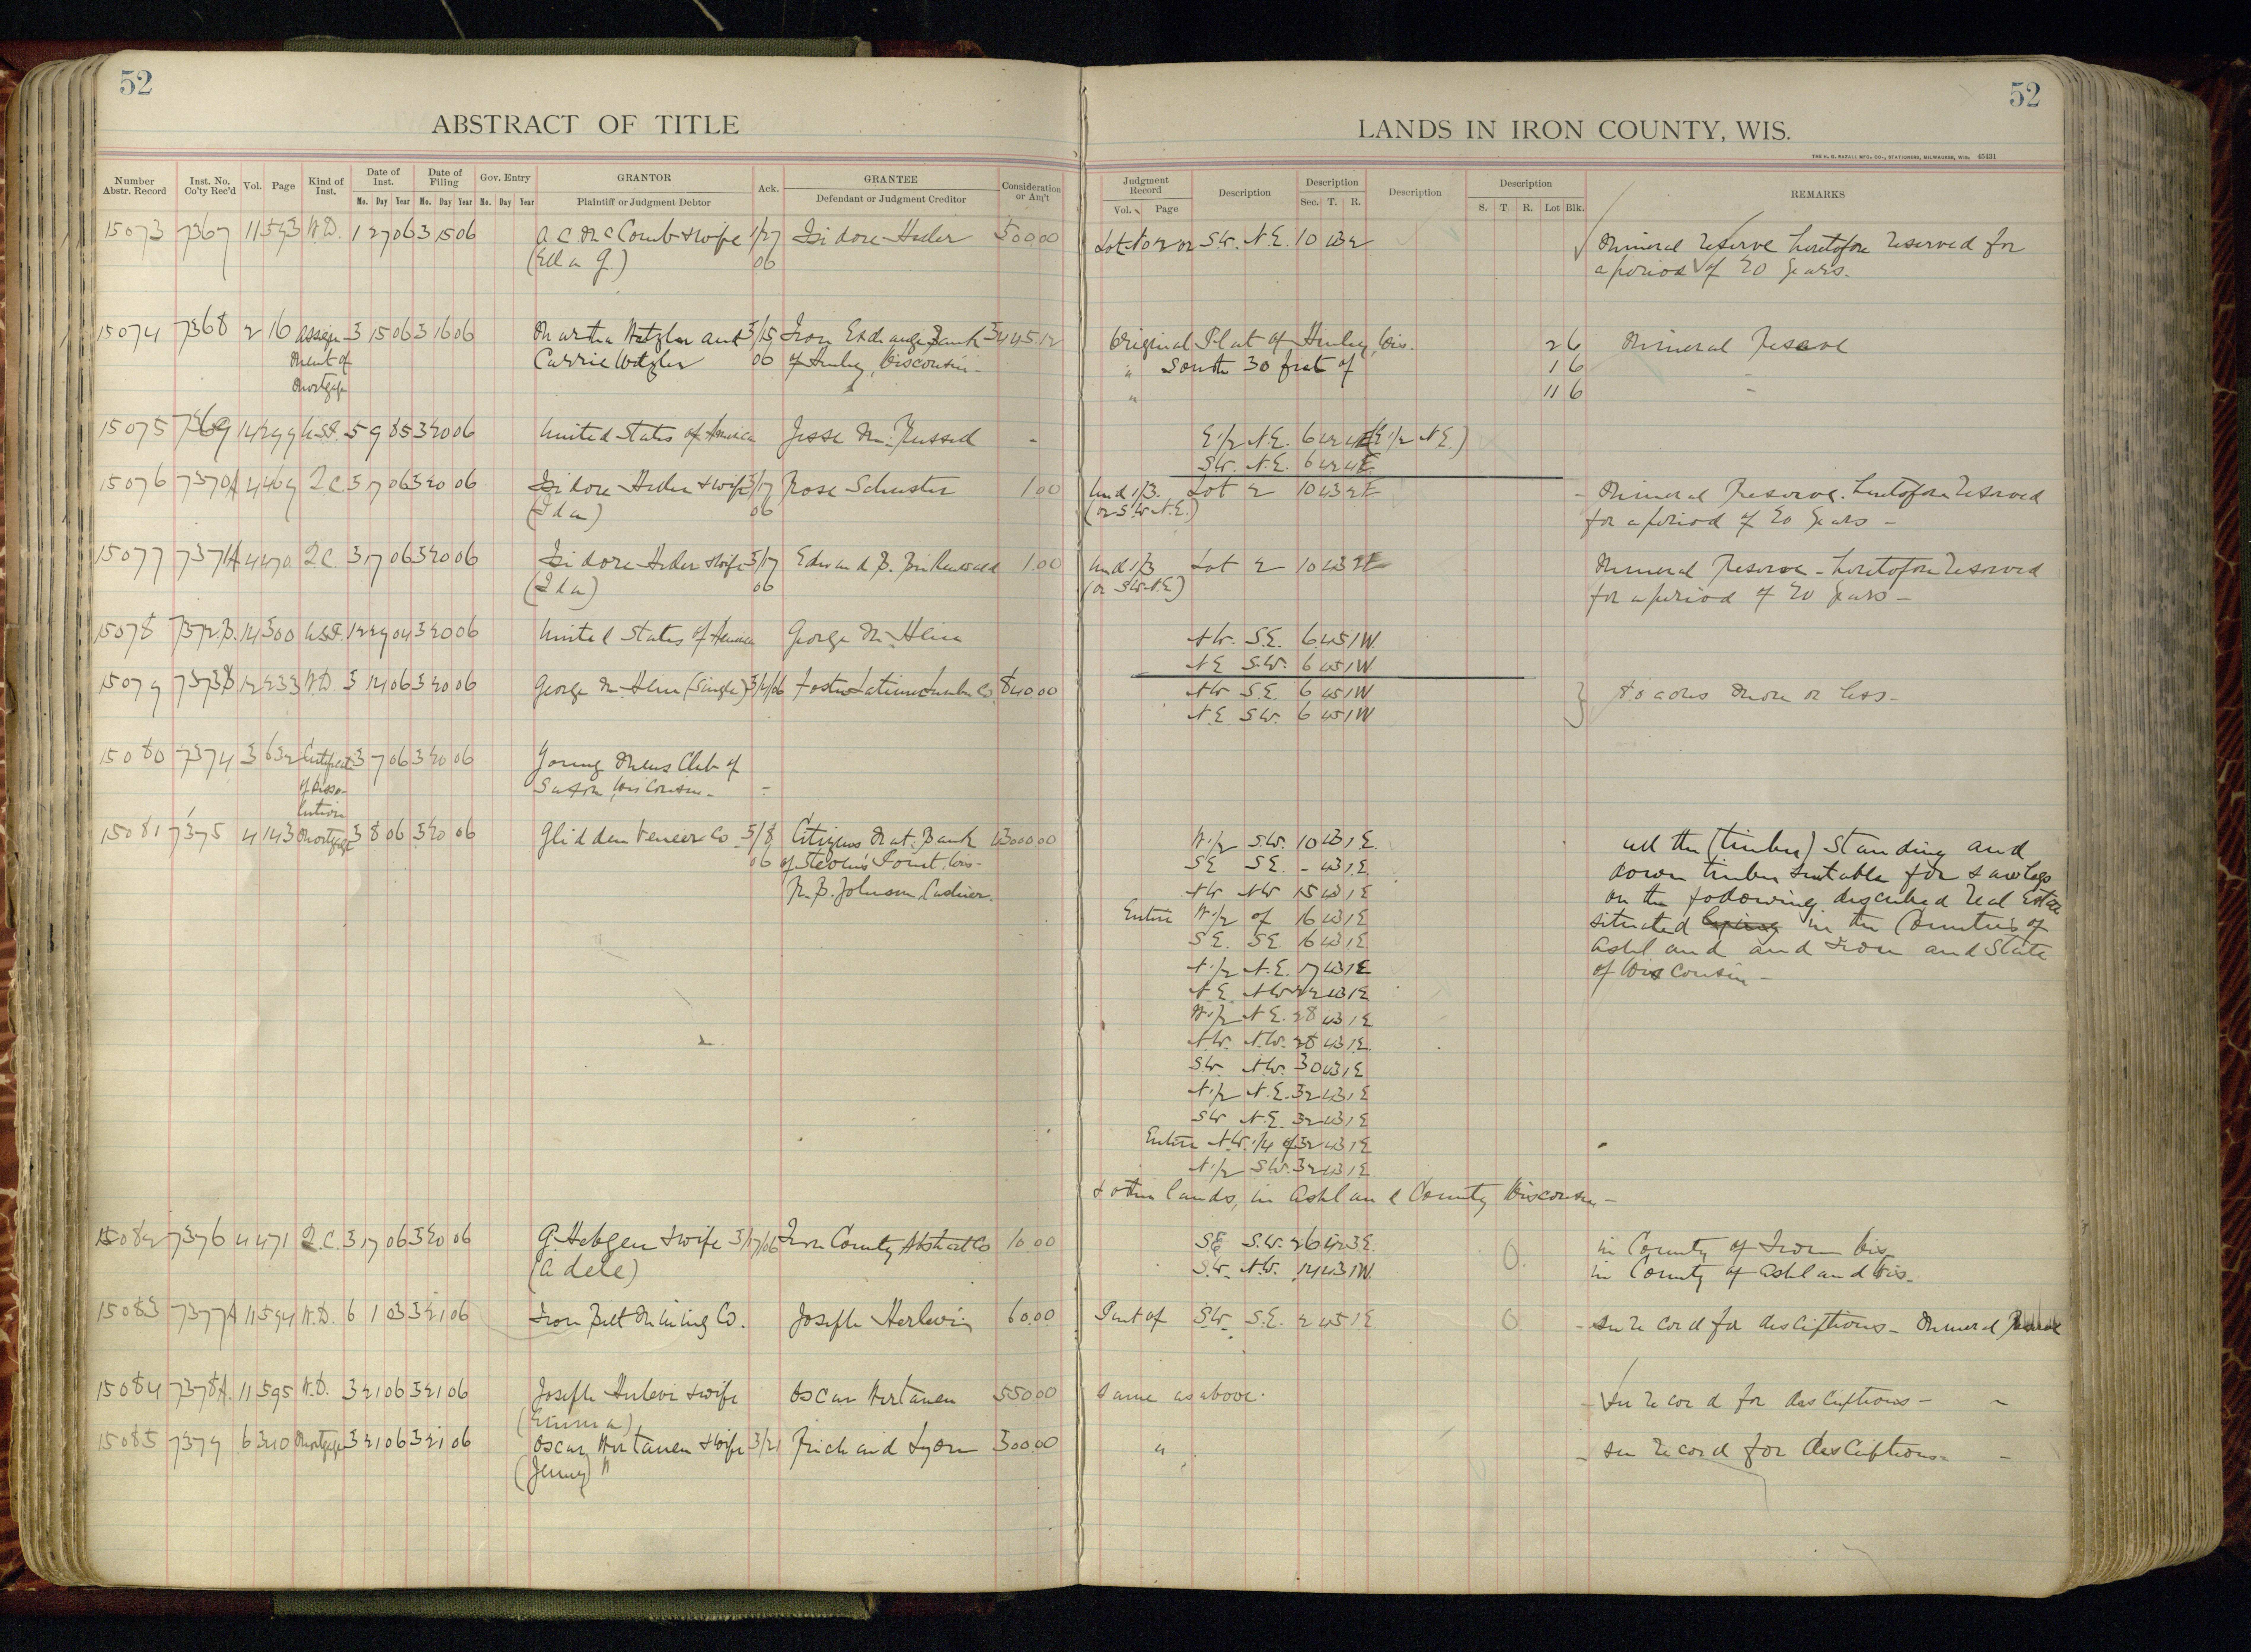 52
ABSTRACT OF TITLE
Number Abstr. Record Inst. No. Co'ty Rec'd Vol. Page Kind of Inst. Date of Inst. Mo. Day Year Date of Filing Mo. Day Year Gov. Entry Mo. Day Year GRANTOR Plaintiff or Judgment Debtor Ack. GRANTEE Defendant or Judgment Creditor Consideration or Am't
15073 7367 11 593 W.D. 1 27 06 3 15 06 A C McComb & wife 1/27 Isidore Heller 500.00
(Ella J.) 06
15074 7368 2 16 Assign- 3 15 06 3 16 06 Martha Wetzler and 3/15 Iron Exchange Bank 3445.12
ment of Carrie Wetzler 06 of Hurley, Wisconsin
Mortgage
15075 7369 14 299 U.S.P. 5 9 85 3 20 06 United States of America Jesse M. Russell -
15076 7370A 4 469 Q.C. 3 17 06 3 20 06 Isidore Heller & wife 3/17 Rose Schuster 1.00
(Ida) 06
15077 7371A 4 470 Q.C. 3 17 06 3 20 06 Isidore Heller & wife 3/17 Edward B. 1.00
(Ida) 06
15078 7372.B. 14 300 U.S.P. 12 29 04 3 20 06 United States of America George M. Hein
15079 7373B 12 233 W.D. 3 14 06 3 20 06 George M. Hein (Single) 3/14/06 Foster Latimer Lumber Co. 840.00
15080 7374 3 632 Certificate 3 7 06 3 20 06 Young Mens Club of
of Disso- Saxon, Wisconsin -
lution
15081 7375 4 143 Mortgage 3 8 06 3 20 06 Glidden Veneer Co. 3/8 Citizens Nat. Bank 13000.00
06 of Steven's Point, Wis-
R. B. Johnson, Cashier.
15082 7376 4 471 Q.C. 3 17 06 3 20 06 G. Hebgen & wife 3/17/06 Iron County Abstract Co 10.00
(Adele)
15083 7377A 11 594 W.D. 6 1 03 3 21 06 Iron Belt Mining Co. Joseph Herlevin 60.00
15084 7378A. 11 595 W.D. 3 21 06 3 21 06 Joseph Herlevi & wife Oscar Wirtanen 550.00
(Emma)
15085 7379 6 310 Mortgage 3 21 06 3 21 06 Oscar Wirtanen & wife 3/21 Richard Lyon 300.00
(Jenny) "
52
LANDS IN IRON COUNTY, WIS.
THE H. G. RAZALL MFG. CO., STATIONERS, MILWAUKEE, WIS. 45431
Judgment Record Vol. Page Description Description Sec. T. R. Description Description S. T. R. Lot Blk. REMARKS
Lot No 2 or S.W. N.E. 10 43 2 Mineral reserve heretofore reserved for
a period of 20 years.
Original Plat of Hurley, Wis. 2 6 Mineral Reserve
" South 30 feet of 1 6
" 11 6 "
E 1/2 N.E. 6 42 4E (E 1/2 N.E.)
S.W. N.E. 6 42 4E
Und 1/3 Lot 2 10 43 2E - Mineral Reserve. heretofore reserved
(or S.W. N.E.) for a period of 20 years -
Und 1/3 Lot 2 10 43 2E Mineral Reserve - heretofore reserved
(or S.W. N.E.) for a period of 20 years -
N.W. S.E. 6 45 1W.
N E S.W. 6 45 1W
N.W S.E. 6 45 1W } 80 acres more or less -
N.E. S.W. 6 45 1W
W. 1/2 S.W. 10 43 1 E. all the (timber) standing and
S E S E. - 43 1.E. down timber suitable for saw logs
N W N W 15 43 1 E on the following described real Estate
Entire W. 1/2 of 16 43 1 E situated lying in the Counties of
S E. S E. 16 43 1 E Ashland and Iron and State
N. 1/2 N.E. 17 43 1 E of Wisconsin -
N E. N W 22 43 1 E
W. 1/2 N E. 28 43 1 E
N W. N.W. 28 43 1 E.
S.W. N.W. 30 43 1 E
N. 1/2 N.E. 32 43 1 E
S W N.E. 32 43 1 E
Entire N.W. 1/4 of 32 43 1 E
N. 1/2 S.W. 32 43 1 E
& other lands, in Ashland County Wisconsin -
S E S.W. 26 42 3 E. 0. in County of Iron Wis
S.W. N.W. 14 43 1 W. in County of Ashland Wis.
Part of S.W. S.E. 2 45 1 E 0 - See record for descriptions - Mineral Reserve
Same as above. - See record for descriptions - -
" - See record for descriptions - -